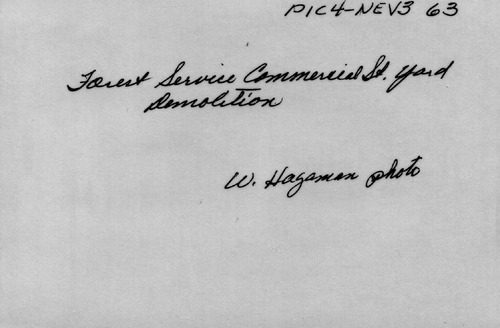 PIC4-NEV3 63
Forest Service Commercial St. Yard
Demolition
W. Hagaman photo